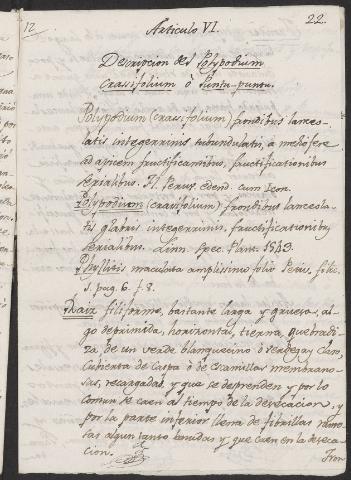 12
22.
Articulo VI.
Descripcion del Polypodium
Crassifolium ó Puntu-puntu.
Polypodium (crassifolium) frondibus lanceo-
latis integerrimis subundulatis, a medio fere
ad apicem fructificantibus, fructificationibus
serialibus. Fl. Peruv. edend. cum Icon.
Polypodium (crassifolium) frondibus lanceola-
tis glabris integerrimis, fructificationibus
serialibus. Linn. Spec. Plant. 1543.
Phyllitis maculata amplissimo folio Petiv. filic.
s. pag. 6. f. 8.
Raiz filiforme, bastante larga y gruesa, al-
go deprimida, horizontal, tierna, quebradi-
za, de un verde blanquecino ó verdegay claro,
cubierta de caspa ó de escamillas membrano-
sas, recargadas, y que se desprenden y por lo
comun se caen al tiempo de la desecacion, y
por la parte inferior llena de fibrillas ramo-
sas algun tanto belludas y que caen en la deseca-
cion.
Fron